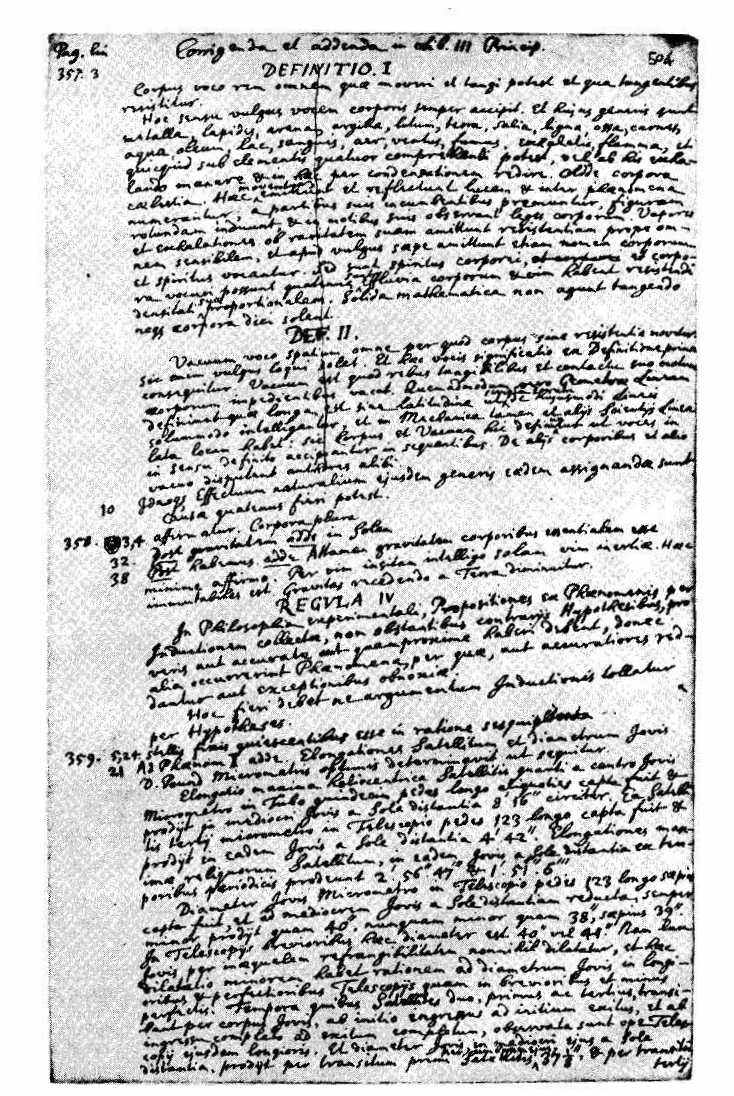 Pag. lin Corrigenda et addenda in Lib. III Princip. 504
357. 3 DEFINITIO. I
Corpus voco rem omnem quæ moveri et tangi potest et qua tangentibus
resistitur.
Hoc sensu vulgus vocem corporis semper accipit. Et hujus generis sunt
metalla, lapides, arena, argilla, lutum, terra, salia, ligna, ossa, carnes,
aqua, oleum, lac, sanguis, aer, ventus, fumus, exhalatio, flamma, et
quicquid sub elementis quatuor comprehendi potest, vel ab his exha-
lando manare & in hæc per condensationem redire. Adde corpora
cælestia. Hæc moventur et reflectunt lucem & inter phænomena
numerantur, a partibus suis incumbentibus premuntur, figuram
rotundam induunt, & in motibus suis observant leges corporum. Vapores
et exhalationes ob raritatem suam amittunt resistentiam prope om-
nem sensibilem, et apud vulgus sæpe amittunt etiam nomen corporum
et spiritus vocantur. Sed sunt spiritus corporei, et corpo-
ra vocari possunt quatenus sunt effluvia corporum & vim habent resistendi
densitati suæ proportionalem. Solida mathematica non agunt tangendo
neque corpora dici solent.
DEF. II.
Vacuum voco spatium omne per quod corpus sine resistentia movetur.
Sic enim vulgus loqui solet. Et hæc vocis significatio ex Definitione prima
consequitur. Vacuum est quod rebus tangibilibus et contactu suo motum
corporum impedientibus vacat. Quemadmodum Geometræ Lineam
definiunt quæ longa est sine latitudine hujusmodi Lineis
solummodo intelligantur, et in Mechanica tamen et alijs Scientijs Linea
lata locum habet: sic Corpus et Vacuum hic definitur ut voces in
in sensu definito accipiantur in sequentibus. De alijs corporibus et alio
vacuo disputant autores alibi.
10 Ideoque Effectuum naturalium ejusdem generis eædem assignandæ sunt
Causæ quatenus fieri potest.
358. 3,4 affirmatur. Corpora plura
32 post gravitatem adde in Solem
38 Post habemus adde Attamen gravitatem corporibus essentialem esse
minime affirmo. Per vim insitam intelligo solam vim inertiæ. Hæc
immutabilis est. Gravitas recedendo a Terra diminuitur.
REGULA IV
In Philosophia experimentali, Propositiones ex Phænomenis per
Inductionem collectæ, non obstantibus contrarijs Hypothesibus, pro
veris aut accurate aut quamproxime haberi debent, donec
alia occurrerint Phænomena, per quæ, aut accuratiores red-
dantur aut exceptionibus obnoxiæ.
Hoc fieri debet ne argumentum Inductionis tollatur
per Hypotheses.
359. 5,24 stellis fixis quiescentibus esse in ratione sesquiplicata
21 Ad Phænom I adde. Elongationes Satellitum et diametrum Jovis
D. Pound Micrometris optimis determinavit ut sequitur.
Elongatio maxima heliocentrica Satellitis quarti a centro Jovis
Micrometro in Tubo quindecim pedes longo aliquoties capta fuit &
prodijt in mediocri Jovis a Sole distantia 8' 16" circiter. Ea Satelli-
tis tertij micrometro in Telescopio pedes 123 longo capta fuit &
prodijt in eadem Jovis a Sole distantia 4' 42". Elongationes max-
imæ reliquorum Satellitum, in eadem Jovis a Sole distantia ex tem-
poribus periodicis prodeunt 2'. 56". 47'" & 1'. 51". 6'".
Diameter Jovis Micrometro in Telescopio pedes 123 longo sæpius
capta fuit, et ad mediocrem Jovis a Sole distantiam reducta, semper
minor prodijt quam 40", nunquam minor quam 38", sæpius 39".
In Telescopijs brevioribus hæc diameter est 40" vel 41". Nam lux
Jovis per inæqualem refrangibilitatem nonnihil dilatatur, et hæc
dilatatio minorem habet rationem ad diametrum Jovis in longi-
oribus & perfectioribus Telescopijs quam in brevioribus et minus
perfectis. Tempora quibus Satellites duo, primus ac tertius, transi-
bant per corpus Jovis, ab initio ingressus ad initium exitus, et ab
ingressu completo ad exitum completum, observata sunt ope Teles-
copij ejusdem longioris. Et diameter Jovis in mediocri ejus a Sole
distantia, prodijt per transitum primi Satellitis 37⅛", & per transitum
tertij